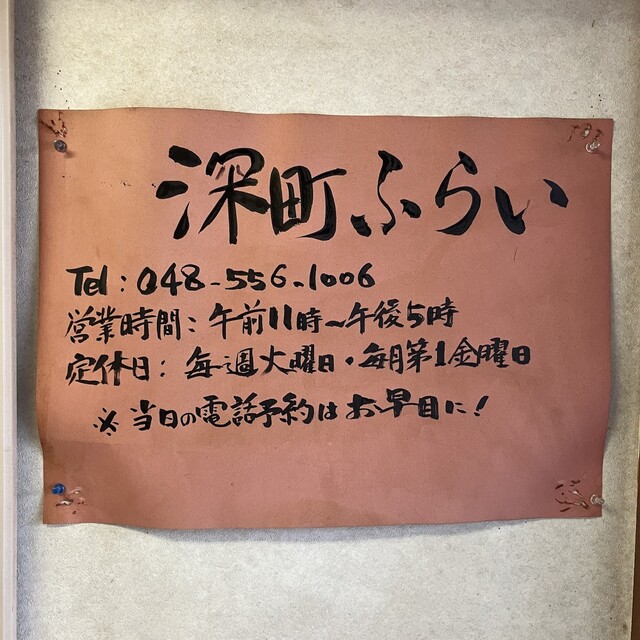 深町ふらい
Tel：048-556-1006
営業時間：午前11時～午後5時
定休日：毎週火曜日・毎月第1金曜日
※当日の電話予約はお早目に！